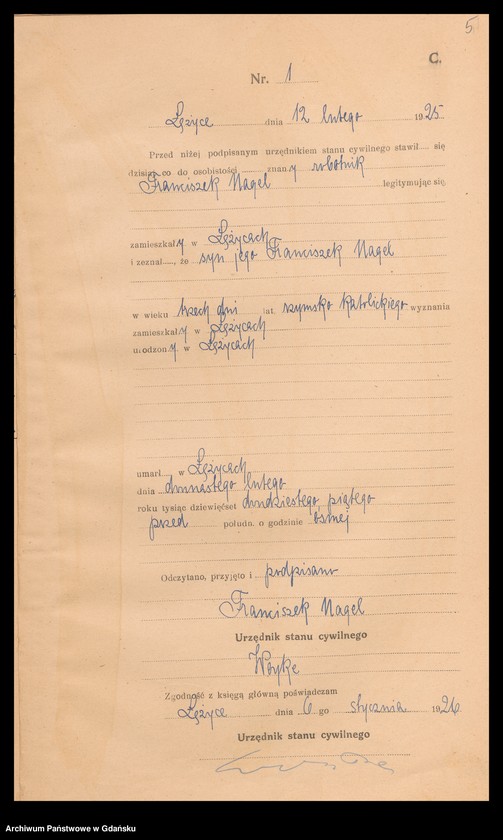 5.
C.
Nr. 1
Łężyce dnia 12 lutego 1925
Przed niżej podpisanym urzędnikiem stanu cywilnego stawił.... się
dzisiaj co do osobistości znany robotnik
Franciszek Nagel legitymując się
zamieszkały w Łężycach
i zeznał...., że syn jego Franciszek Nagel
w wieku trzech dni lat, rzymsko katolickiego wyznania
zamieszkały w Łężycach
urodzony w Łężycach
umarł...., w Łężycach
dnia dwunastego lutego
roku tysiąc dziewięćset dwudziestego piątego
przed połudn. o godzinie ósmej
Odczytano, przyjęto i podpisano
Franciszek Nagel
Urzędnik stanu cywilnego
Woyke
Zgodność z księgą główną poświadczam
Łężyce dnia 6 go stycznia 1926
Urzędnik stanu cywilnego
Archiwum Państwowe w Gdańsku